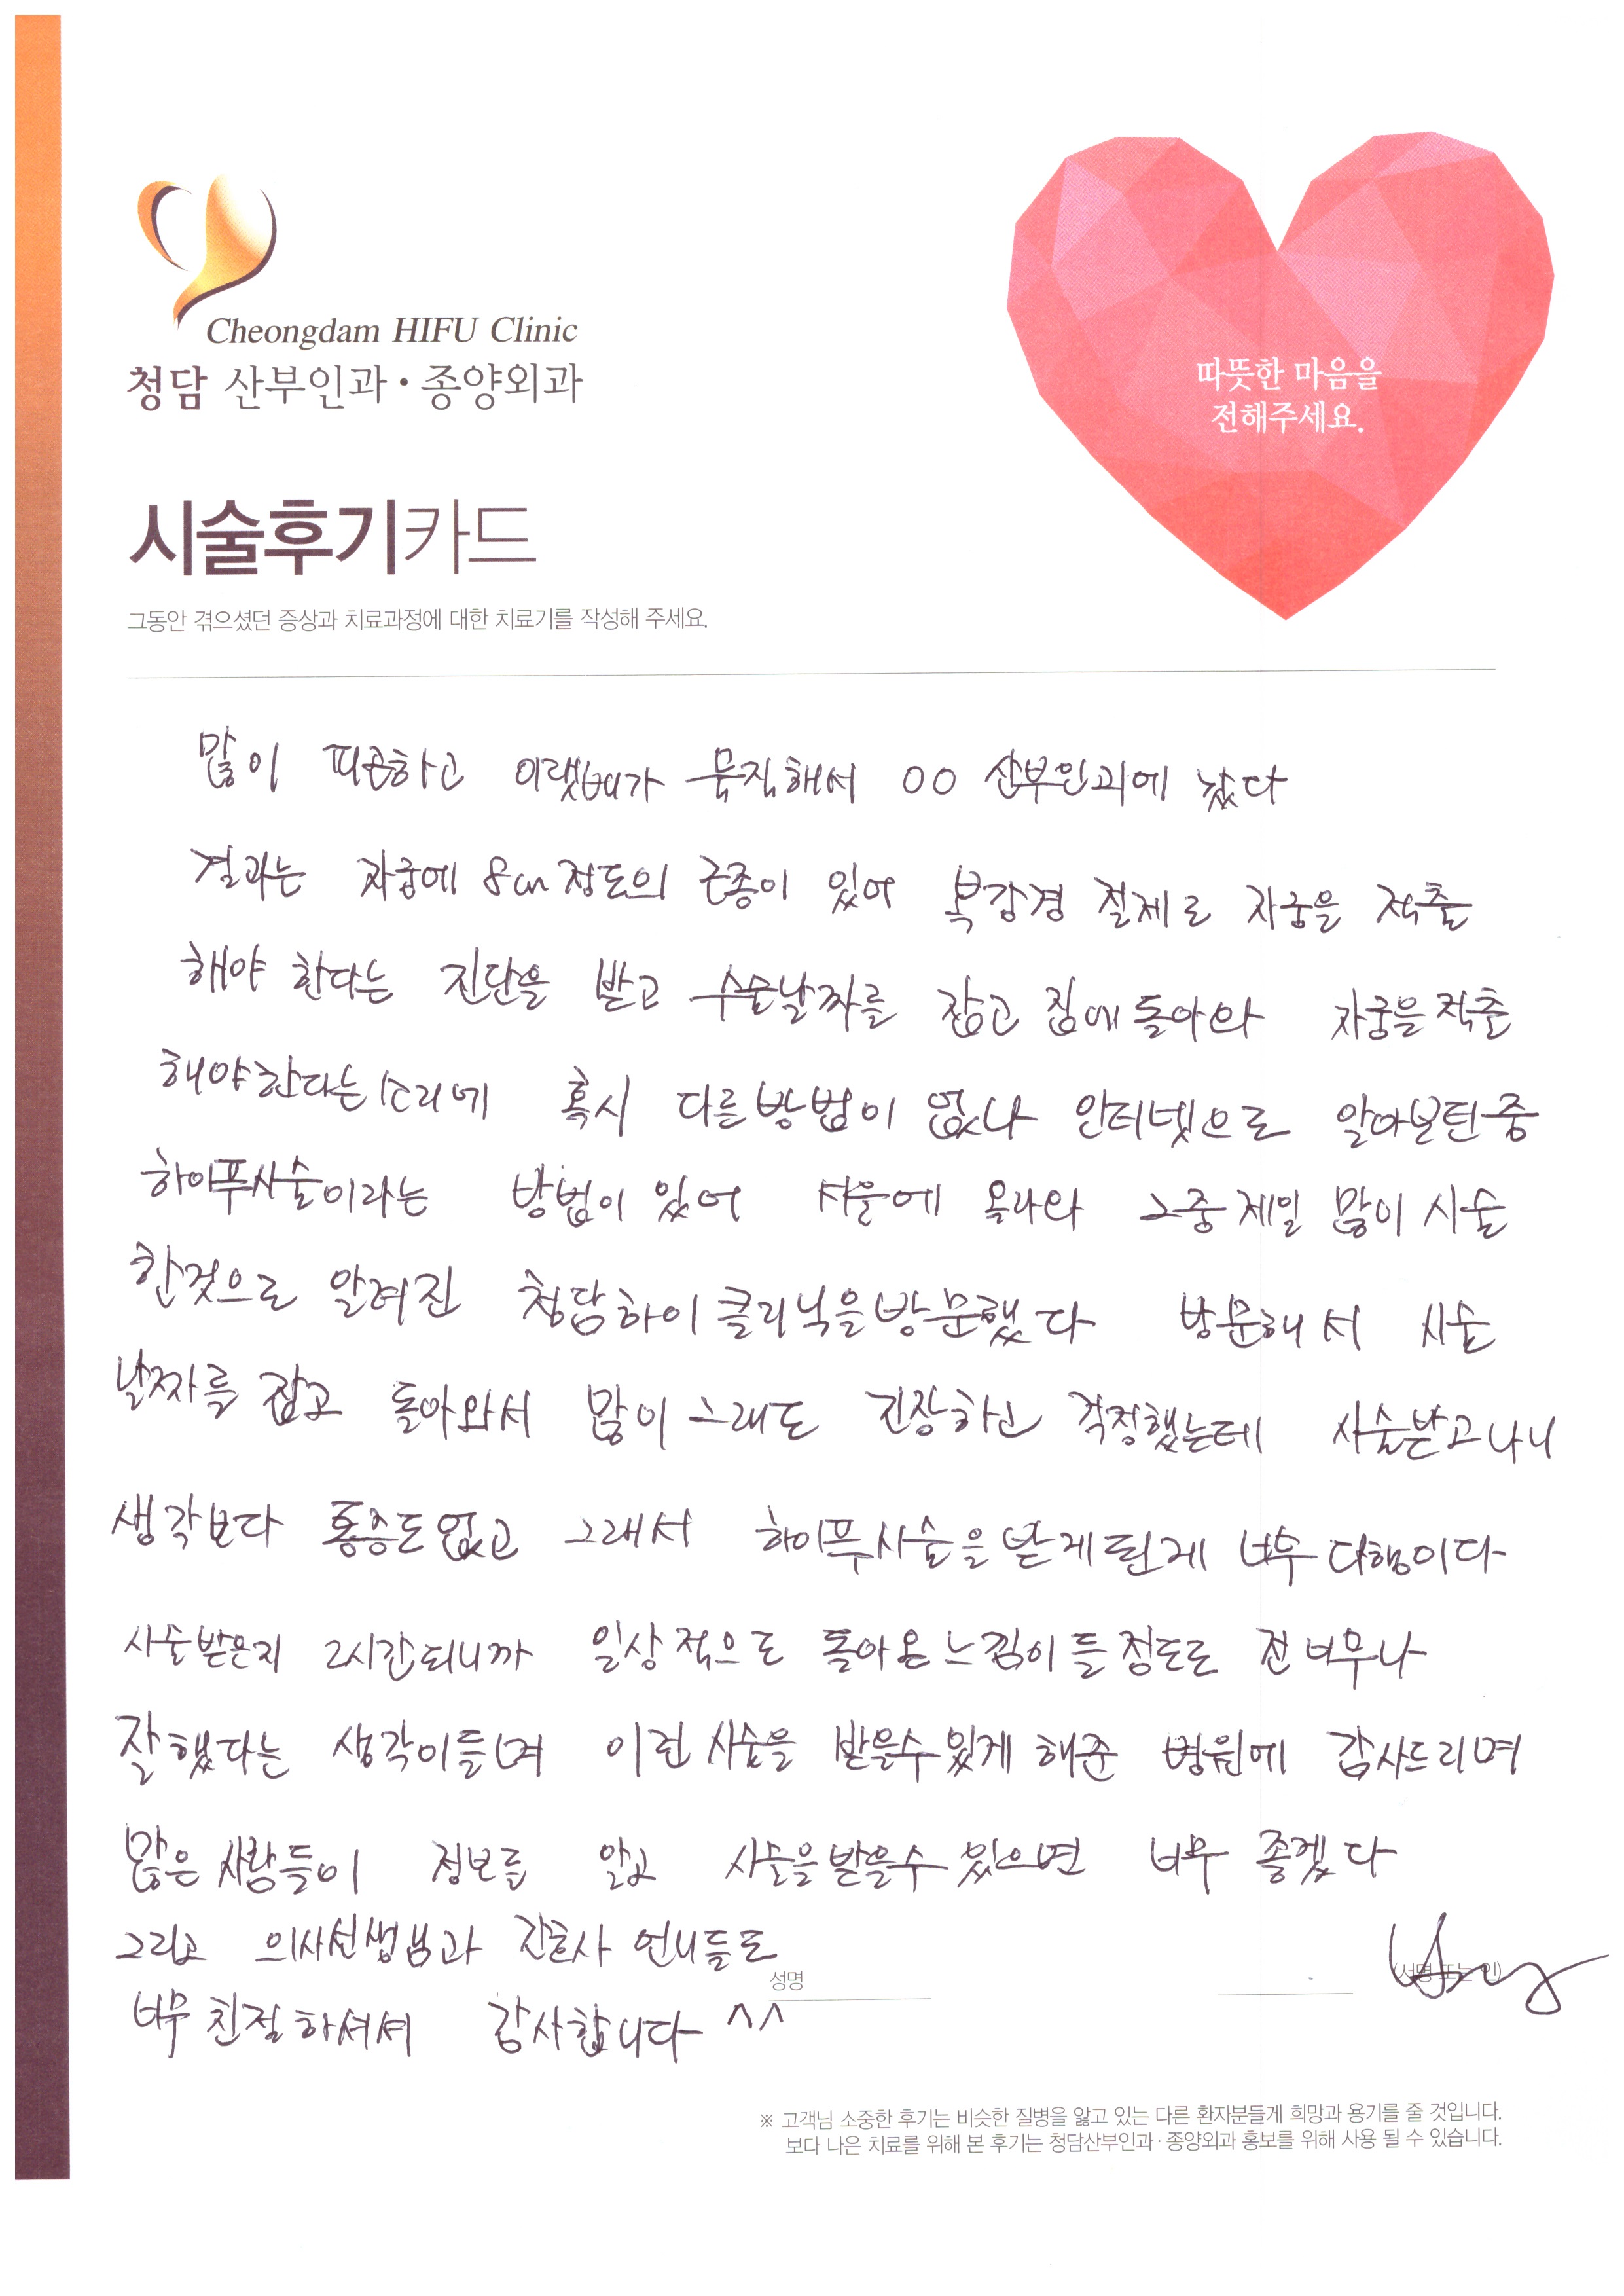 Cheongdam HIFU Clinic
청담 산부인과·종양외과
따뜻한 마음을
전해주세요.
시술후기카드
그동안 겪으셨던 증상과 치료과정에 대한 치료기를 작성해 주세요.
많이 피곤하고 아랫배가 묵직해서 OO 산부인과에 갔다
결과는 자궁에 8cm정도의 근종이 있어 복강경 절제로 자궁을 적출
해야 한다는 진단을 받고 수술날짜를 잡고 집에 돌아와 자궁을 적출
해야한다는 소리에 혹시 다른방법이 없나 인터넷으로 알아보던중
하이푸시술이라는 방법이 있어 서울에 올라와 그중 제일 많이 시술
한것으로 알려진 청담하이클리닉을방문했다 방문해서 시술
날짜를 잡고 돌아와서 많이 그래도 긴장하고 걱정했는데 시술받고나니
생각보다 통증도없고 그래서 하이푸시술을받게된게 너무 다행이다
시술받은지 2시간되니까 일상적으로 돌아온느낌이들정도로 전 너무나
잘했다는 생각이들며 이런 시술을 받을수있게 해준 병원에 감사드리며
많은 사람들이 정보를 알고 시술을받을수 있으면 너무 좋겠다
그리고 의사선생님과 간호사 언니들도
성명 (서명 또는 인)
너무 친절하셔서 감사합니다 ^^
※ 고객님 소중한 후기는 비슷한 질병을 앓고 있는 다른 환자분들게 희망과 용기를 줄 것입니다.
보다 나은 치료를 위해 본 후기는 청담산부인과·종양외과 홍보를 위해 사용 될 수 있습니다.